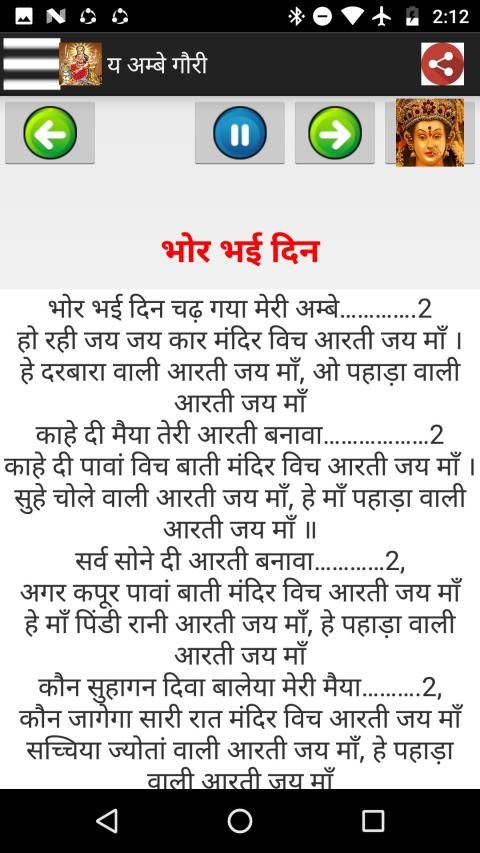 2:12
य अम्बे गौरी
भोर भई दिन
भोर भई दिन चढ़ गया मेरी अम्बे.............2
हो रही जय जय कार मंदिर विच आरती जय माँ ।
हे दरबारा वाली आरती जय माँ, ओ पहाड़ा वाली
आरती जय माँ
काहे दी मैया तेरी आरती बनावा..................2
काहे दी पावां विच बाती मंदिर विच आरती जय माँ ।
सुहे चोले वाली आरती जय माँ, हे माँ पहाड़ा वाली
आरती जय माँ ॥
सर्व सोने दी आरती बनावा............2,
अगर कपूर पावां बाती मंदिर विच आरती जय माँ
हे माँ पिंडी रानी आरती जय माँ, हे पहाड़ा वाली
आरती जय माँ
कौन सुहागन दिवा बालेया मेरी मैया..........2,
कौन जागेगा सारी रात मंदिर विच आरती जय माँ
सच्चिया ज्योतां वाली आरती जय माँ, हे पहाड़ा
वाली आरती जय माँ